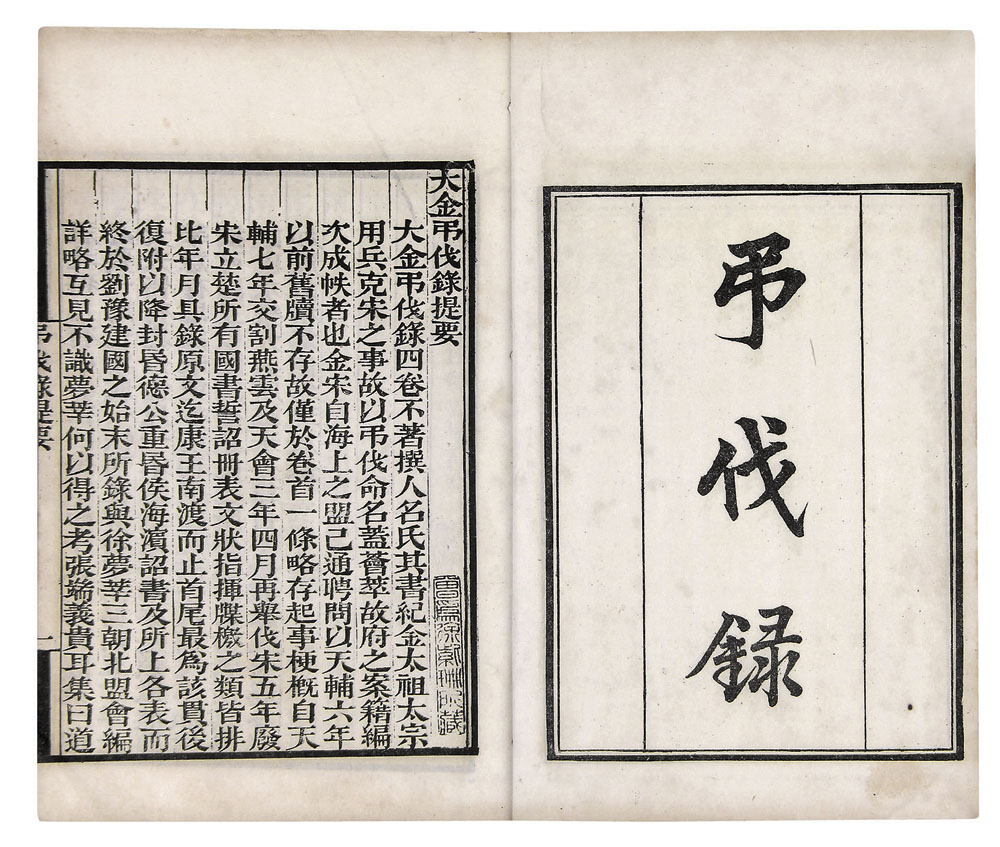 弔伐録
大金弔伐錄提要
曾爲徐紫珊所藏
大金弔伐錄四卷不著撰人名氏其書紀金太祖太宗
用兵克宋之事故以弔伐命名蓋薈萃故府之案籍編
次成帙者也金宋自海上之盟己通聘問以天輔六年
以前舊牘不存故僅於卷首一條略存起事梗概自天
輔七年交割燕雲及天會二年四月再舉伐宋五年廢
宋立楚所有國書誓詔冊表文狀指揮牒檄之類皆排
比年月具錄原文迄康王南渡而止首尾最爲該貫後
復附以降封昬德公重昬侯海濱詔書及所上各表而
終於劉豫建國之始末所錄與徐夢莘三朝北盟會編
詳略互見不識夢莘何以得之考張端義貴耳集曰道
弔伐錄提要
一